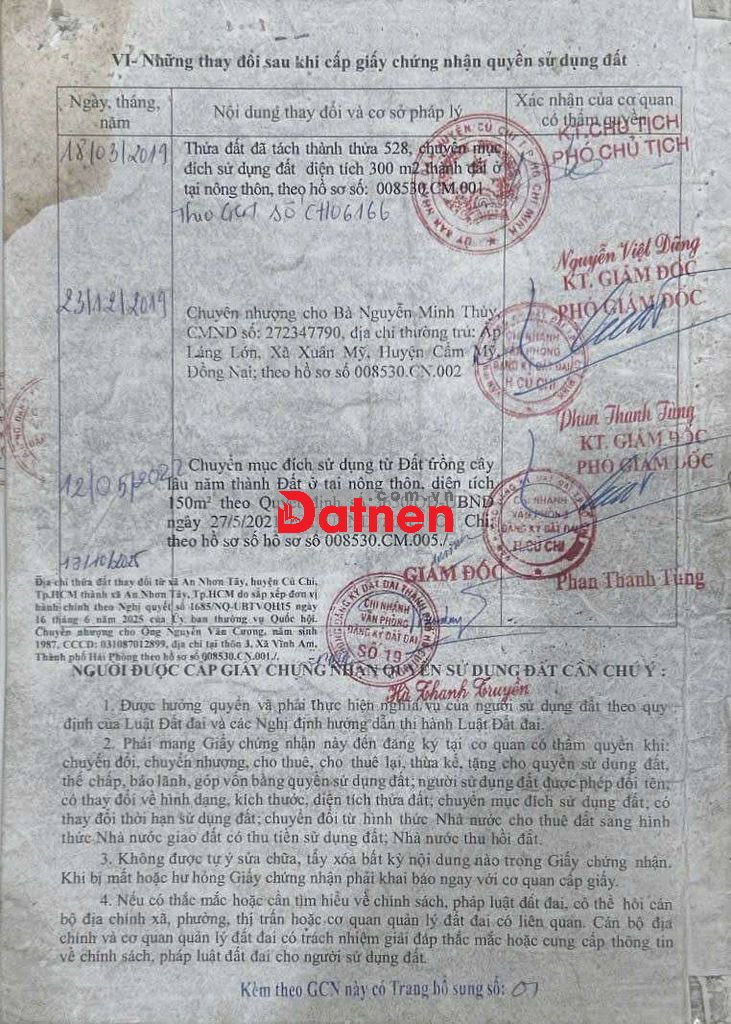 VI- Những thay đổi sau khi cấp giấy chứng nhận quyền sử dụng đất
Ngày, tháng, năm
Nội dung thay đổi và cơ sở pháp lý
Xác nhận của cơ quan có thẩm quyền
18/03/2019
Thửa đất đã tách thành thửa 528, chuyển mục
đích sử dụng đất diện tích 300 m2 thành đất ở
tại nông thôn, theo hồ sơ số: 008530.CM.001
Theo GCN số CH06166
KT.CHỦ TỊCH
PHÓ CHỦ TỊCH
Nguyễn Việt Dũng
23/12/2019
Chuyển nhượng cho Bà Nguyễn Minh Thùy,
CMND số: 272347790, địa chỉ thường trú: Ấp
Láng Lớn, Xã Xuân Mỹ, Huyện Cẩm Mỹ,
Đồng Nai; theo hồ sơ số 008530.CN.002
KT. GIÁM ĐỐC
PHÓ GIÁM ĐỐC
CHI NHÁNH
VĂN PHÒNG
ĐĂNG KÝ ĐẤT ĐAI
H.CỦ CHI
Phan Thanh Tùng
12/05/2022
Chuyển mục đích sử dụng từ Đất trồng cây
lâu năm thành Đất ở tại nông thôn, diện tích
150m² theo Quyết định số
BND
ngày 27/5/202
Chi,
theo hồ sơ số hồ sơ số 008530.CM.005./.
KT. GIÁM ĐỐC
PHÓ GIÁM ĐỐC
CHI NHÁNH
VĂN PHÒNG
ĐĂNG KÝ ĐẤT ĐAI
H.CỦ CHI
Phan Thanh Tùng
Datnen
.com.vn
13/10/2025
Địa chỉ thửa đất thay đổi từ xã An Nhơn Tây, huyện Củ Chi,
Tp.HCM thành xã An Nhơn Tây, Tp.HCM do sắp xếp đơn vị
hành chính theo Nghị quyết số 1685/NQ-UBTVQH15 ngày
16 tháng 6 năm 2025 của Ủy ban thường vụ Quốc hội.
Chuyển nhượng cho Ông Nguyễn Văn Cương, năm sinh
1987, CCCD: 031087012899, địa chỉ tại thôn 3, Xã Vĩnh Am,
Thành phố Hải Phòng theo hồ sơ số 008530.CN.001./.
GIÁM ĐỐC
CHI NHÁNH
VĂN PHÒNG
ĐĂNG KÝ ĐẤT ĐAI
SỐ 19
Hà Thanh Truyền
NGƯỜI ĐƯỢC CẤP GIẤY CHỨNG NHẬN QUYỀN SỬ DỤNG ĐẤT CẦN CHÚ Ý :
1. Được hưởng quyền và phải thực hiện nghĩa vụ của người sử dụng đất theo quy
định của Luật Đất đai và các Nghị định hướng dẫn thi hành Luật Đất đai.
2. Phải mang Giấy chứng nhận này đến đăng ký tại cơ quan có thẩm quyền khi:
chuyển đổi, chuyển nhượng, cho thuê, cho thuê lại, thừa kế, tặng cho quyền sử dụng đất,
thế chấp, bảo lãnh, góp vốn bằng quyền sử dụng đất; người sử dụng đất được phép đổi tên;
có thay đổi về hình dạng, kích thước, diện tích thửa đất; chuyển mục đích sử dụng đất; có
thay đổi thời hạn sử dụng đất; chuyển đổi từ hình thức Nhà nước cho thuê đất sang hình
thức Nhà nước giao đất có thu tiền sử dụng đất; Nhà nước thu hồi đất.
3. Không được tự ý sửa chữa, tẩy xóa bất kỳ nội dung nào trong Giấy chứng nhận.
Khi bị mất hoặc hư hỏng Giấy chứng nhận phải khai báo ngay với cơ quan cấp giấy.
4. Nếu có thắc mắc hoặc cần tìm hiểu về chính sách, pháp luật đất đai, có thể hỏi cán
bộ địa chính xã, phường, thị trấn hoặc cơ quan quản lý đất đai có liên quan. Cán bộ địa
chính và cơ quan quản lý đất đai có trách nhiệm giải đáp thắc mắc hoặc cung cấp thông tin
về chính sách, pháp luật đất đai cho người sử dụng đất.
Kèm theo GCN này có Trang bổ sung số: 01